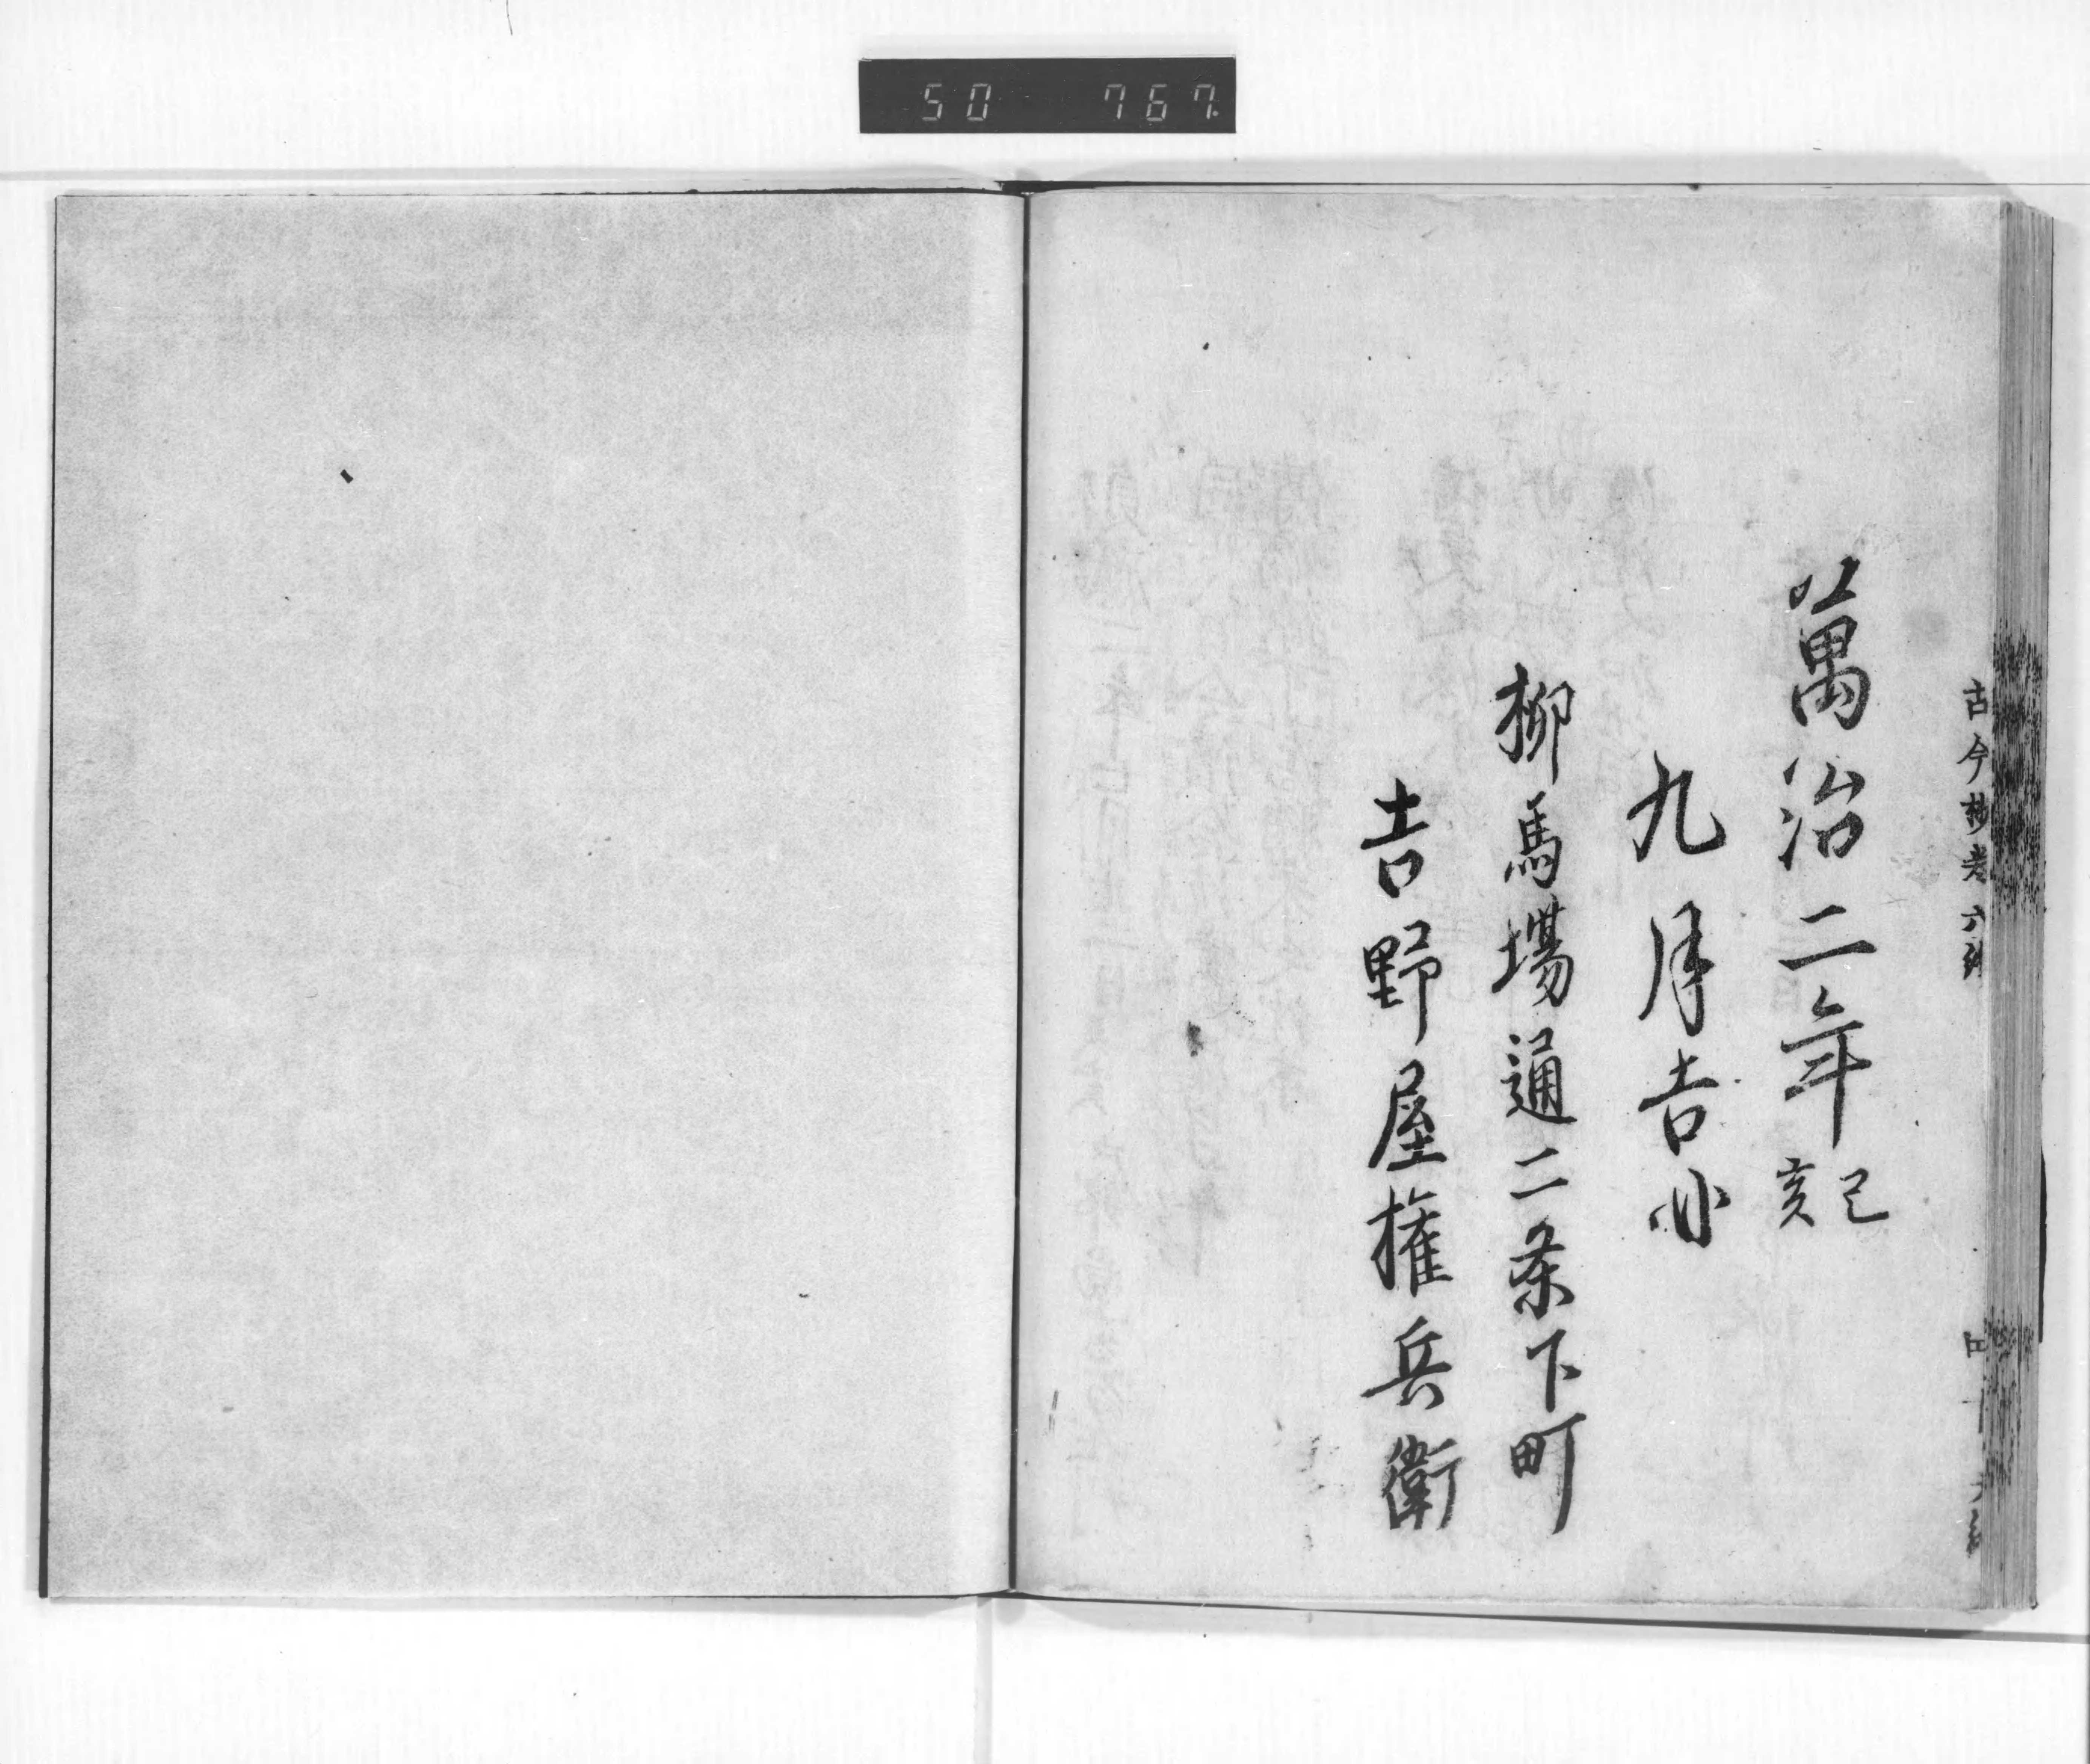 50 767
古今抄巻六
萬治二年己亥
九月吉日
柳馬場通二条下町
吉野屋権兵衛